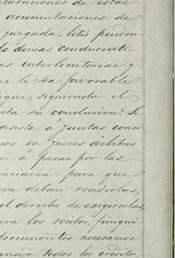 de estas
acumulaciones de
juzgada, litis penden
lo demas conducente
as interlocutorias y
le sea favorable
siguiendo el
sta su conclusion: Se
asista a juntas conci
en jueces árbitros
é á pasar por las
para que
deban rendirlas,
el derecho de exigirlas,
los recibos finiqui
documentos necesarios
todos los créditos